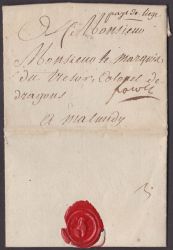 payé de liege
A Monsieur
Monsieur le marquis
du Tresur, Colonel de
dragons
a malmidy